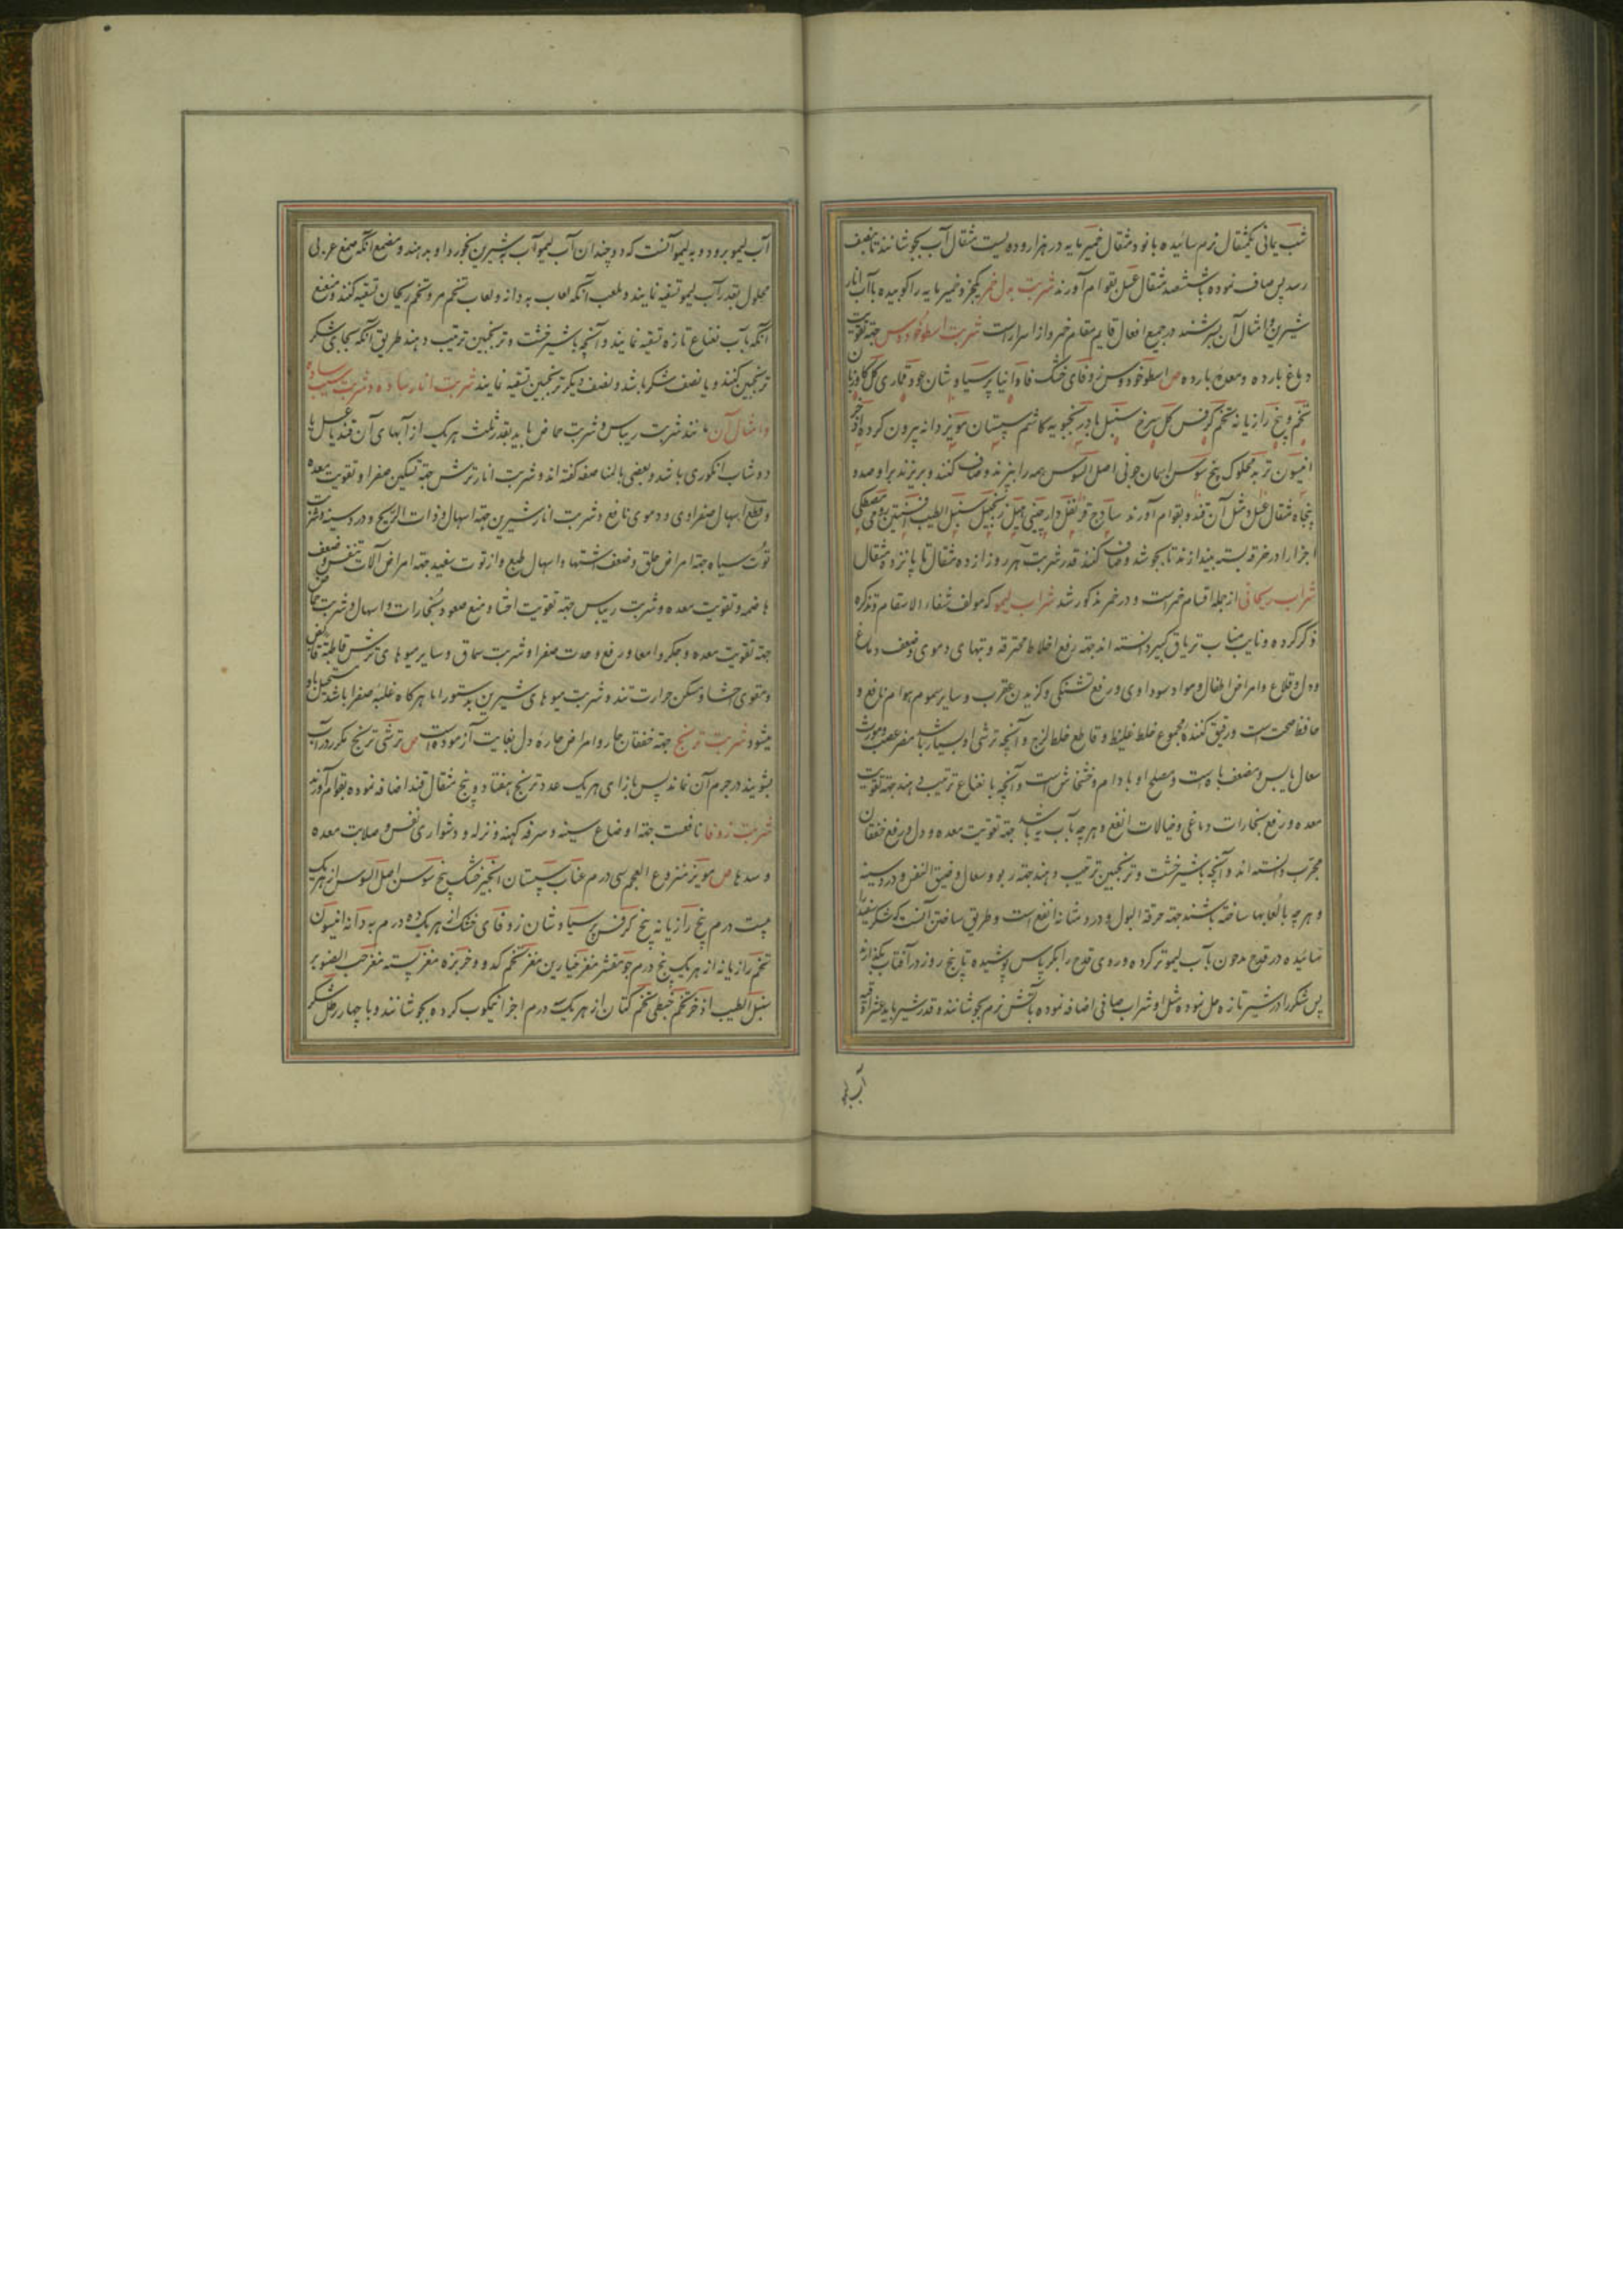 شب یمانی یکمثقال نرم سائیده با نود مثقال خمیر مایه در هزار و دویست مثقال آب بجوشانند تا بنصف
رسد پس صاف نموده با ششصد مثقال عسل بقوام آورند شربت بدل خمر یکجزو خمیر مایه را کوبیده با آب انار
شیرین و امثال آن بسرشند در جمیع افعال قایم مقام خمر و از اسرار است شربت اسطوخودوس جهة تقویت
دماغ بارده و معدهٔ بارده ص اسطوخودوس زوفای خشک فاوانیا پرسیاوشان عود قماری گل گاوزبان
تخم و بیخ رازیانه تخم کرفس گل سرخ سنبل بادرنجبویه کاشم سپستان مویز دانه بیرون کرده اذخر
انیسون تربد محکوک بیخ سوسن اسمان جونی اصل السوس همه را بپزند و صاف کنند و بریزند بر او صد و
پنجاه مثقال عسل و مثل آن قند و بقوام آورند ساذج قرنفل دارچینی هیل زنجبیل سنبل الطیب افسنتین رومی مصطکی
اجزا را در خرقه بسته بیندازند تا بجوشد و صاف کنند قدر شربت هر روز از ده مثقال تا پانزده مثقال
شراب ریحانی از جمله اقسام خمر است و در خمر مذکور شد شراب لیمو که مولف شفاء الاسقام و تذکره
ذکر کرده و نایب مناب تریاق کبیر دانسته اند جهة رفع اخلاط محترقه و تبهای دموی و ضعف دماغ
و دل و قلاع و امراض اطفال و مواد سوداوی و رفع تشنگی و گزیدن عقرب و سایر سموم هوام نافع و
حافظ صحت است و رقیق کنندهٔ مجموع خلط غلیظ و قاطع خلط لزج و آنچه ترشی او بسیار باشد مضر عصب و مورث
سعال یابس و مضعف باه است و مصلح او بادام و خشخاش است و آنچه با نعناع ترتیب دهند جهة تقویت
معده و رفع بخارات دماغی و خیالات انفع و هر چه بآب به باشد جهة تقویت معده و دل و رفع خفقان
مجرب دانسته اند و آنچه با شیر خشت و ترنجبین ترتیب دهند جهة ربو و سعال و ضیق النفس و درد سینه
و هر چه با لعابها ساخته باشند جهة حرقة البول و درد مثانه انفع است و طریق ساختن آنست که شکر سفید را
سائیده در قدح مدهون بآب لیمو تر کرده و روی قدح را بکرپاس پوشیده تا پنج روز در آفتاب بگذارند
پس شکر را در شیر تازه حل نموده مثل او شراب صافی اضافه نموده بآتش نرم بجوشانند و قدر شیر باید عشر
آب لیمو
آب لیمو برود و به لیمو آنست که دو چندان آب لیمو آب به شیرین بخورد او بدهند و مصمغ آنکه صمغ عربی
محلول بقدر آب لیمو تسقیه نمایند و ملعب آنکه لعاب به دانه و لعاب تخم مرو و تخم ریحان تسقیه کنند و منعنع
آنکه بآب نعناع تازه تسقیه نمایند و آنچه با شیر خشت و ترنجبین ترتیب دهند طریق آنکه بجای شکر
ترنجبین کنند و یا نصف شکر باشد و نصف دیگر ترنجبین تسقیه نمایند شربت انار ساده و شربت سیب ساده
و امثال آن مانند شربت ریباس و شربت حماض باید بقدر ثلث هر یک از آبهای آن قند یا عسل یا
دوشاب انگوری باشد و بعضی بالمناصفه گفته اند و شربت انار ترش جهة تسکین صفرا و تقویت معده
و قطع اسهال صفراوی و دموی نافع و شربت انار شیرین جهة اسهال و ذات الریح و درد سینه و شربت
توت سیاه جهة امراض حلق و ضعف اشتها و اسهال طبع و از توت سفید جهة امراض آلات تنفس و ضعف
هاضمه و تقویت معده و شربت ریباس جهة تقویت احشا و منع صعود بخارات و اسهال و شربت حماض
جهة تقویت معده و جگر و امعا و رفع وحدت صفرا و شربت سماق و سایر میوهای ترش قاطبة قابض
و مقوی احشا و مسکن حرارت تند و شربت میوهای شیرین بدستور اما هرگاه غلبهٔ صفرا باشد مستحیل باو
میشود شربت ترنج جهة خفقان حار و امراض حارهٔ دل بغایت آزموده است ص ترشی ترنج مکرر در آب
بشویند در جرم آن نماند پس بازای هر یک عدد ترنج هفتاد و پنج مثقال قند اضافه نموده بقوام آورند
شربت زوفا نافعست جهة اوضاع سینه و سرفه کهنه و نزله و دشواری نفس و صلابت معده
و سدها ص مویز منزوع العجم سی درم عناب سپستان انجیر خشک بیخ سوسن اصل السوس از هر یک
بیست درم بیخ رازیانه بیخ کرفس پرسیاوشان زوفای خشک از هر یک ده درم به دانه انیسون
تخم رازیانه از هر یک پنج درم جو مقشر مغز خیارین مغز تخم کدو و خربزه مغز پسته مغز حب الصنوبر
سنبل الطیب اذخر تخم خطمی تخم کتان از هر یک درم اجزا نیمکوب کرده بجوشانند و با چهار رطل شکر